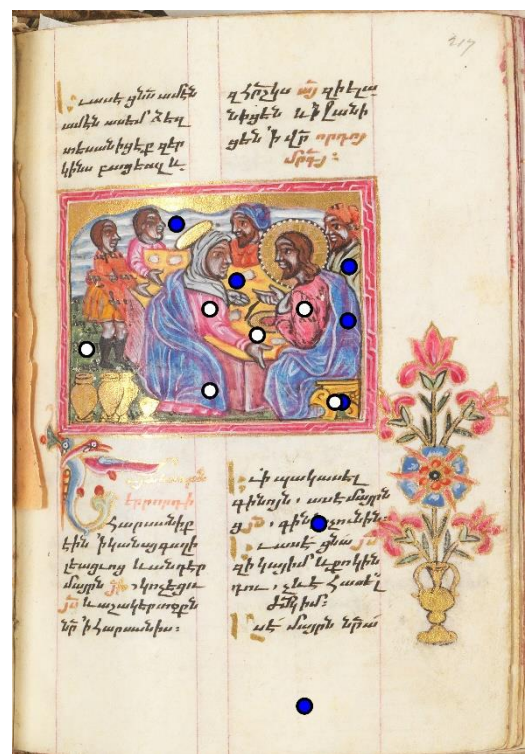 217
Եւ ասէ ցնա ամէն
ամէն ասեմ ձեզ
տեսանիցէք զեր
կինս բացեալ և
զհրշկս այ զի ելա
նիցեն և իջանի
ցեն ի վր որդոյ
մրդոյ։
երրորդի
Հարսանիք
էին ի կանայ գալի
լեացւոց և անդ էր
մայրն յի, կոչեցաւ
յս և աշակերտքն
նր ի հարսանիս։
Եւ ի պակասել
գինւոյն, ասէ մայրն
ցյս, ունին։
Եւ ասէ ցնա յս
զի կայ իմ և քո կին
դու, չև է հասել
ժմկ իմ։
Ասէ մայրն նրա